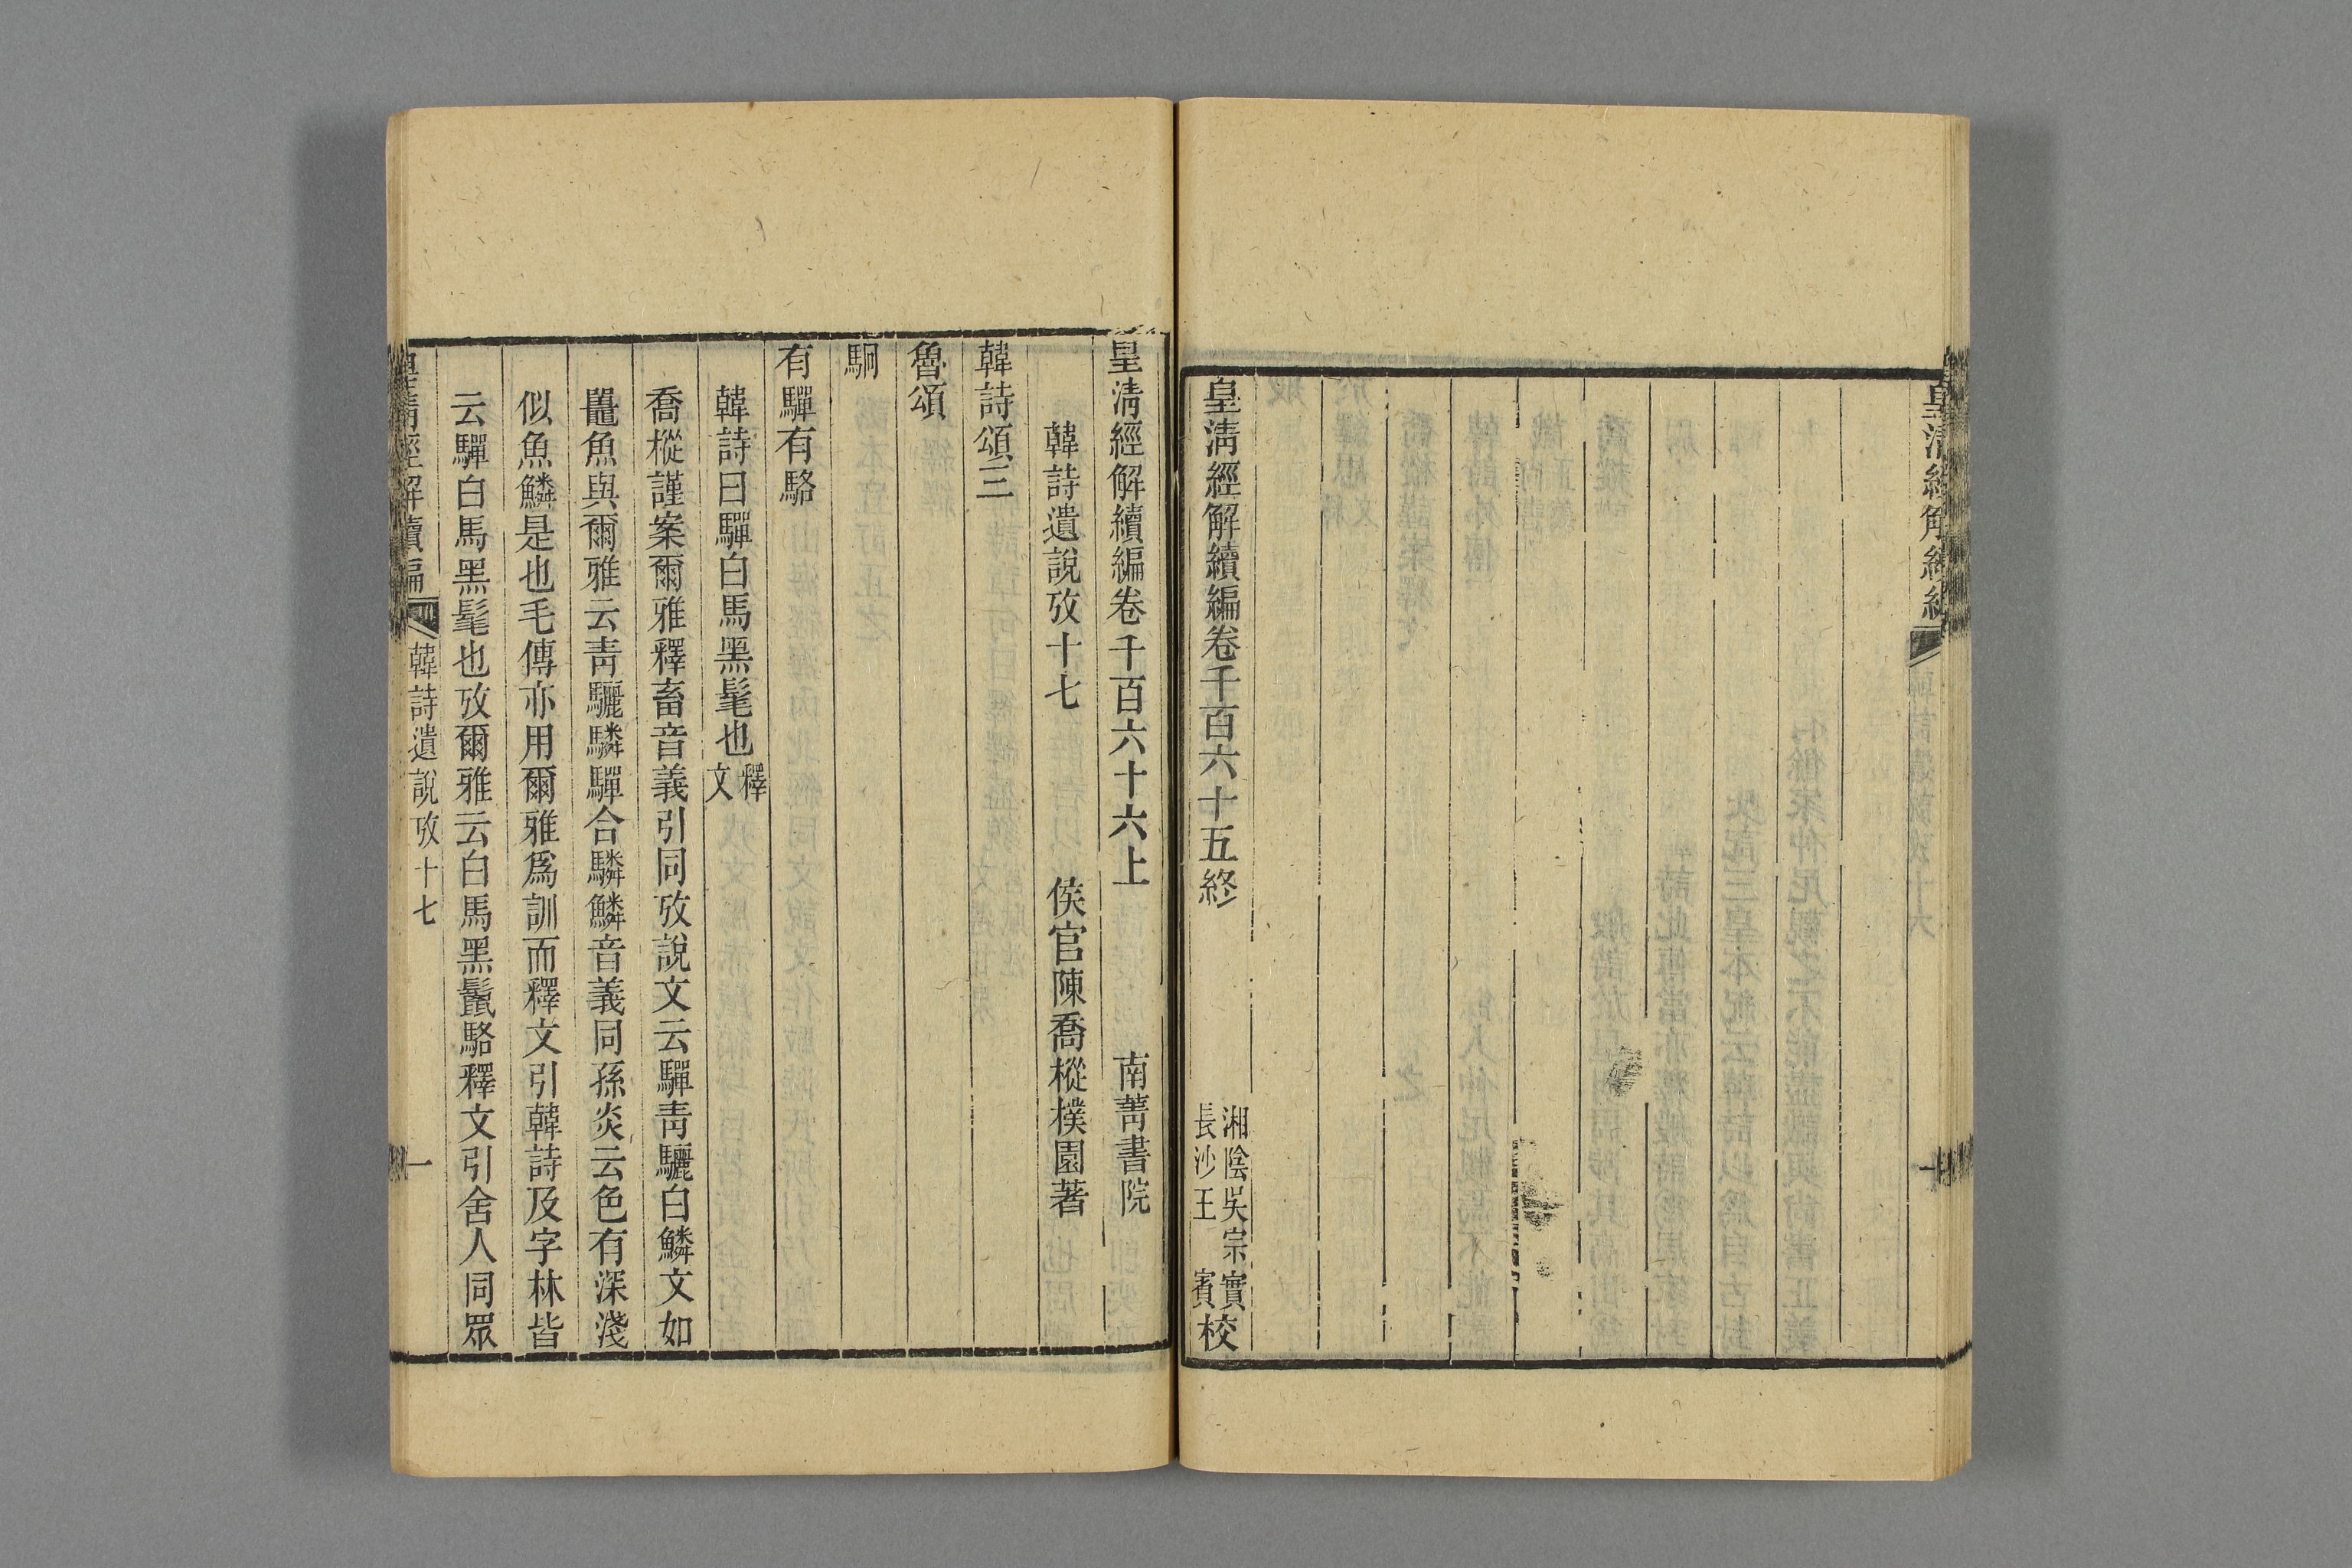 皇清經解續編卷千百六十五終
湘陰吳宗實
長沙王 賓校
皇清經解續編卷千百六十六上
南菁書院
韓詩遺說攷十七
侯官陳喬樅樸園著
韓詩頌三
魯頌
駉
有驒有駱
韓詩曰驒白馬黑髦也釋文
喬樅謹案爾雅釋畜音義引同攷說文云驒青驪白鱗文如
鼉魚與爾雅云青驪驎驒合驎鱗音義同孫炎云色有深淺
似魚鱗是也毛傳亦用爾雅爲訓而釋文引韓詩及字林皆
云驒白馬黑髦也攷爾雅云白馬黑鬣駱釋文引舍人同眾
皇清經解續編
韓詩遺說攷十七
一